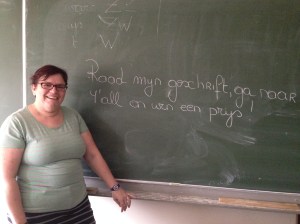 Z
W
W
Raad mijn geschrift, ga naar
Y'all en win een prijs!